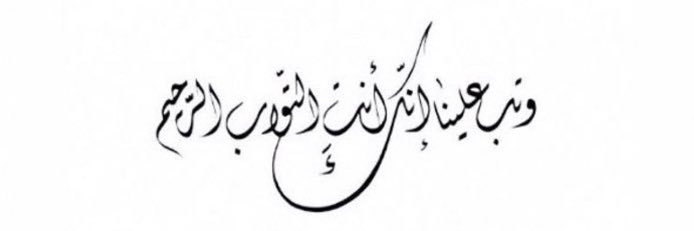 وتب علينا إنّك أنت التّوّاب الرّحيم